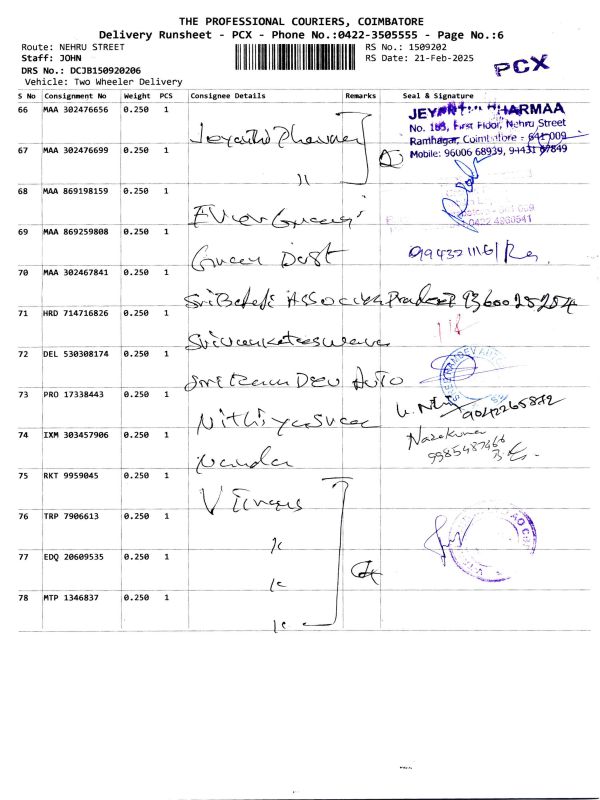 THE PROFESSIONAL COURIERS, COIMBATORE
Delivery Runsheet - PCX - Phone No.:0422-3505555 - Page No.:6
Route: NEHRU STREET
RS No.: 1509202
Staff: JOHN
RS Date: 21-Feb-2025
DRS No.: DCJB150920206
Vehicle: Two Wheeler Delivery
PCX
S No Consignment No Weight PCS Consignee Details Remarks Seal & Signature
66 MAA 302476656 0.250 1
No. 103, First Floor, Nehru Street
Ramnagar, Coimbatore - 641 009
Mobile: 96006 68939, 94431 67849
67 MAA 302476699 0.250 1
68 MAA 869198159 0.250 1
69 MAA 869259808 0.250 1
Green Dust
70 MAA 302467841 0.250 1
Sri Balaji Associates Pradeep 9360025254
71 HRD 714716826 0.250 1
Srivenkateswara
72 DEL 530308174 0.250 1
Sree Ram Dev Auto
73 PRO 17338443 0.250 1
Nithiyasree 9042265872
74 IXM 303457906 0.250 1
Nanda
75 RKT 9959045 0.250 1
76 TRP 7906613 0.250 1
77 EDQ 20609535 0.250 1
78 MTP 1346837 0.250 1